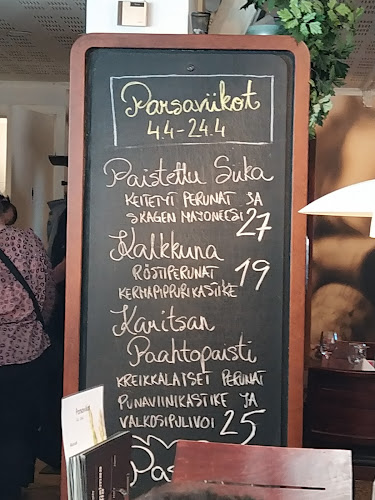 Parsaviikot
4.4-24.4
Paistettu Siika
KEITETYT PERUNAT JA
SKAGEN MAJONEESI 27
Kalkkuna
RÖSTIPERUNAT 19
KERMAPIPPURIKASTIKE
Karitsan
Paahtopaisti
KREIKKALAISET PERUNAT
PUNAVIINIKASTIKE JA
VALKOSIPULIVOI 25